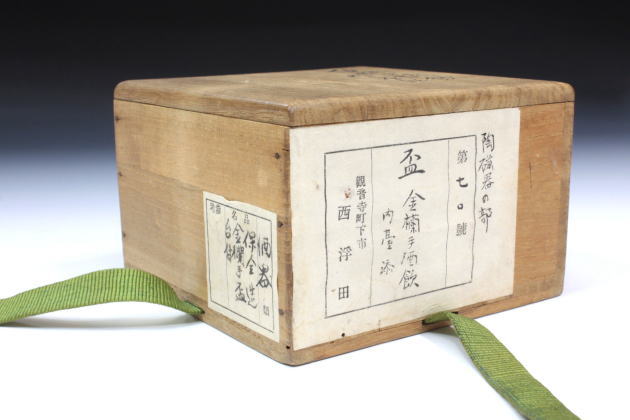 陶磁器の部
第七〇號
盃 金襴手酒飲
内臺添
觀音寺町下市
西浮田
名品
酒器
保全造
金襴手盃
台付